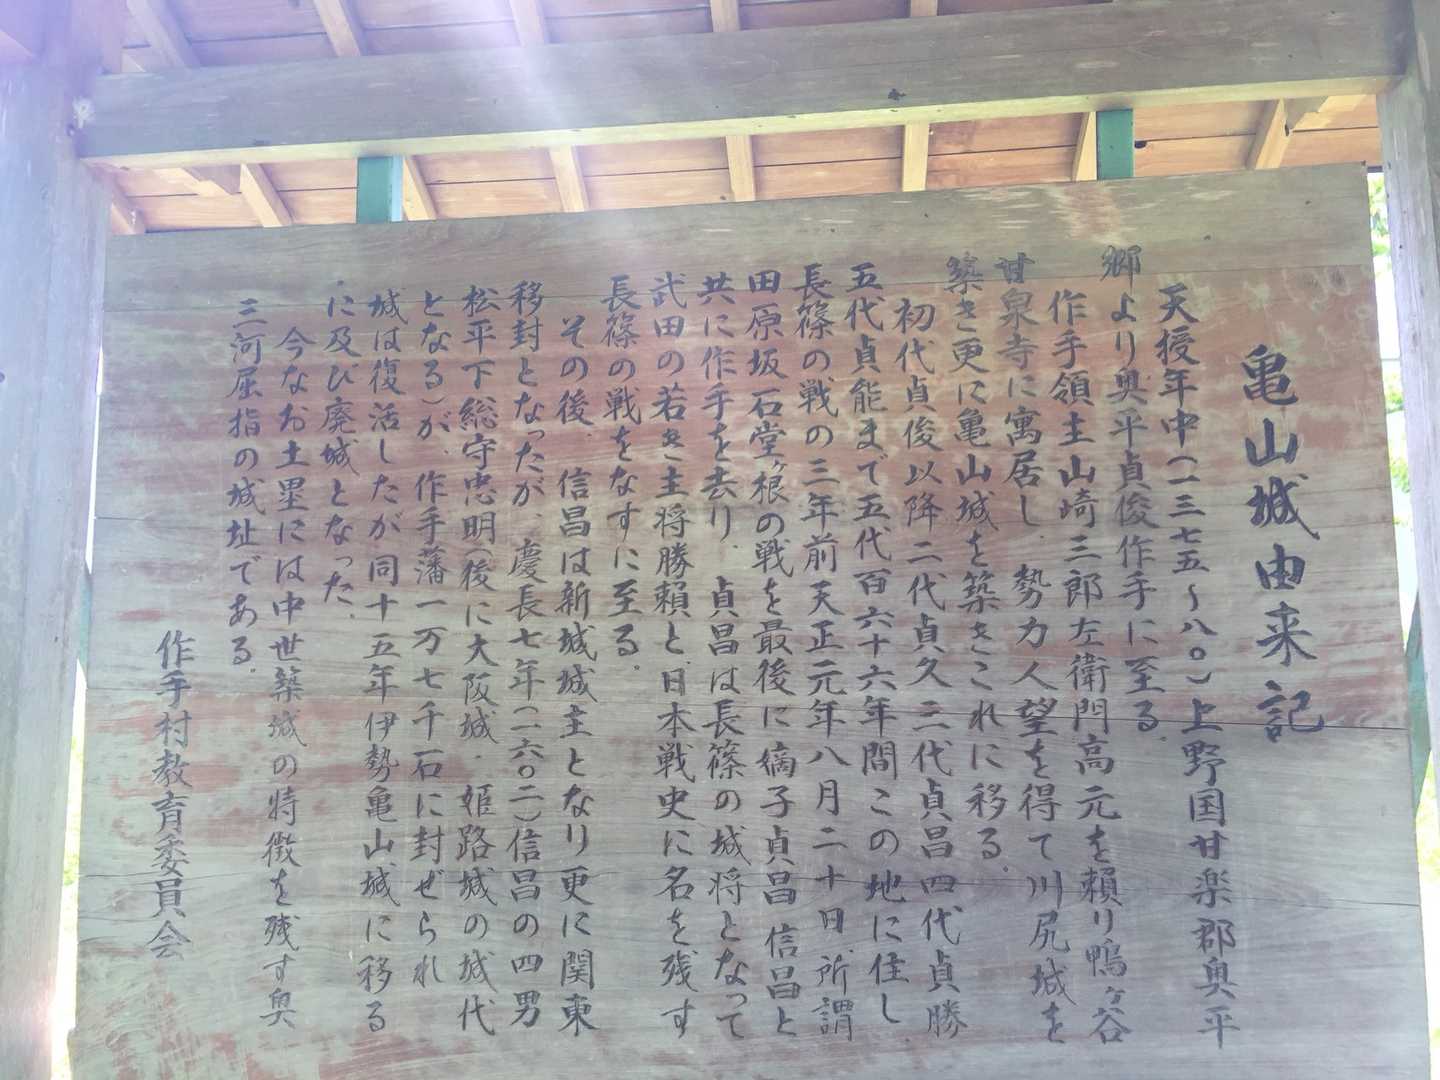 亀山城由来記
天授年中(一三七五〜八〇)上野国甘楽郡奥平
郷より奥平貞俊作手に至る。
作手領主山崎三郎左衛門高元を頼り鴨ヶ谷
甘泉寺に寓居し、勢力人望を得て川尻城を
築き更に亀山城を築きこれに移る。
初代貞俊以降二代貞久三代貞昌四代貞勝
五代貞能まで五代百六十六年間この地に住し
長篠の戦の三年前天正元年八月二十日所謂
田原坂石堂ヶ根の戦を最後に嫡子貞昌信昌と
共に作手を去り、貞昌は長篠の城将となって
武田の若き主将勝頼と、日本戦史に名を残す
長篠の戦をなすに至る。
その後、信昌は新城城主となり更に関東
移封となったが、慶長七年(一六〇二)信昌の四男
松平下総守忠明(後に大阪城、姫路城の城代
となる)が、作手藩一万七千石に封ぜられ
城は復活したが同十五年伊勢亀山城に移る
に及び廃城となった。
今なお土塁には中世築城の特徴を残す奥
三河屈指の城址である。
作手村教育委員会